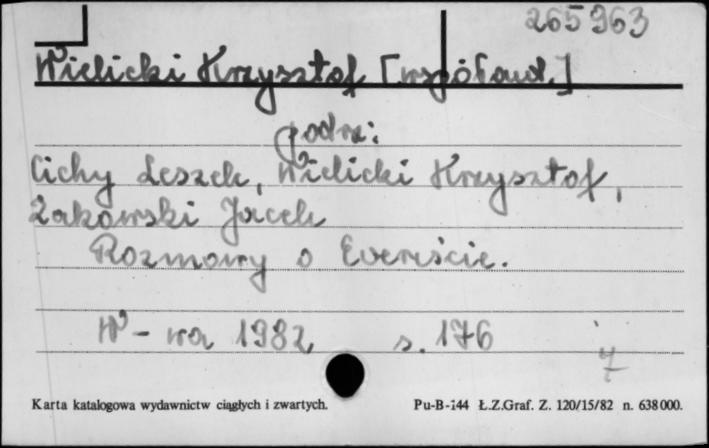 265963
Wielicki Krzysztof [współaut.]
podrz:
Cichy Leszek, Wielicki Krzysztof,
Żakowski Jacek
Rozmowy o Evereście.
W-wa 1982 s. 176
7
Karta katalogowa wydawnictw ciągłych i zwartych. Pu-B-144 Ł.Z.Graf. Z. 120/15/82 n. 638000.